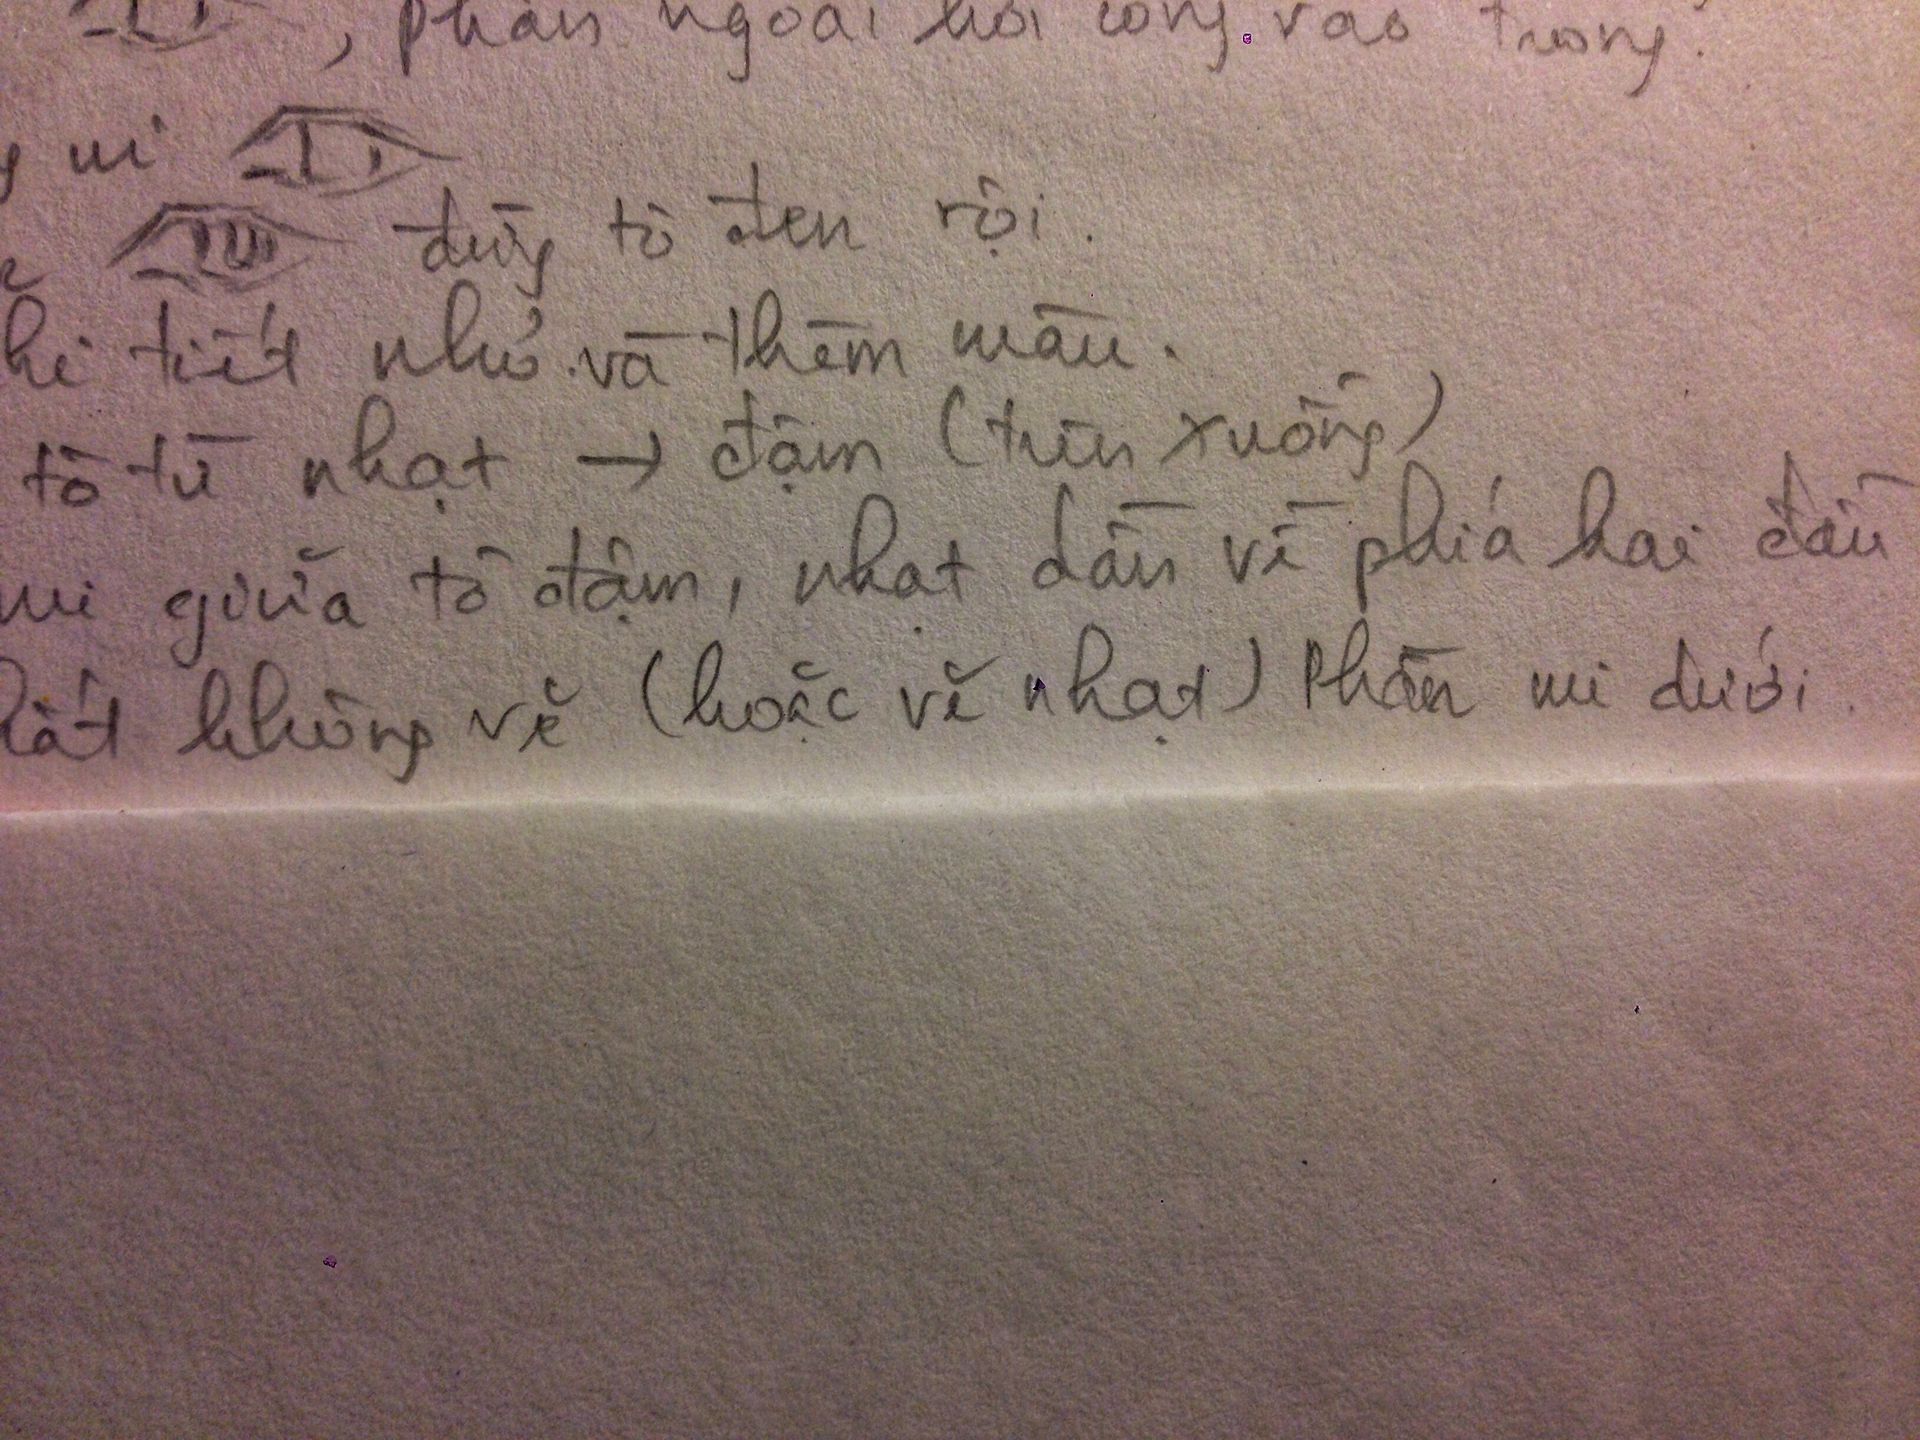 , phần ngoài hơi cong vào trong.
mi
đừng tô đen vội.
tiết nhỏ và thêm màu.
tô từ nhạt → đậm (trên xuống)
mi giữa tô đậm, nhạt dần về phía hai đầu
không vẽ (hoặc vẽ nhạt) phần mi dưới.